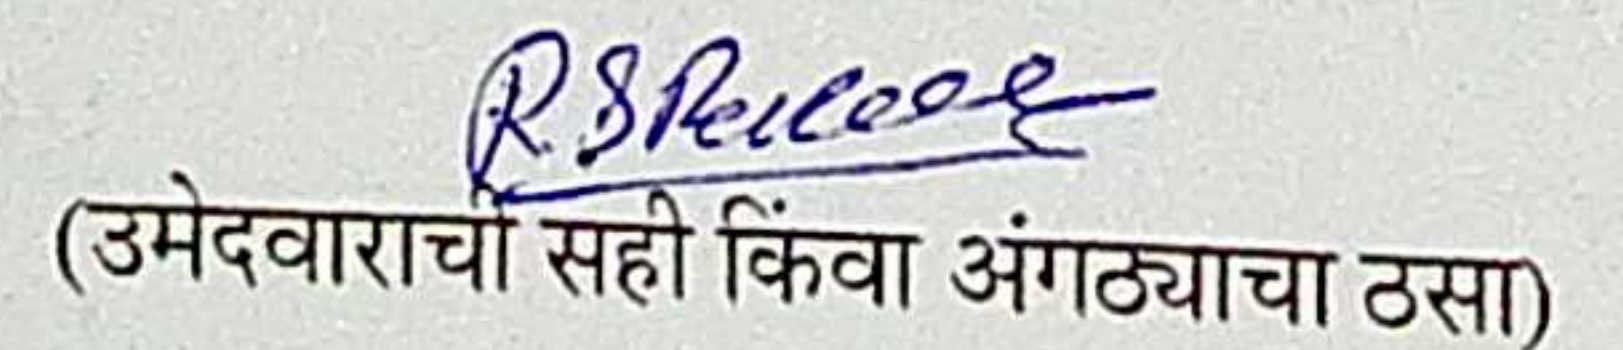 R.S
(उमेदवाराची सही किंवा अंगठ्याचा ठसा)